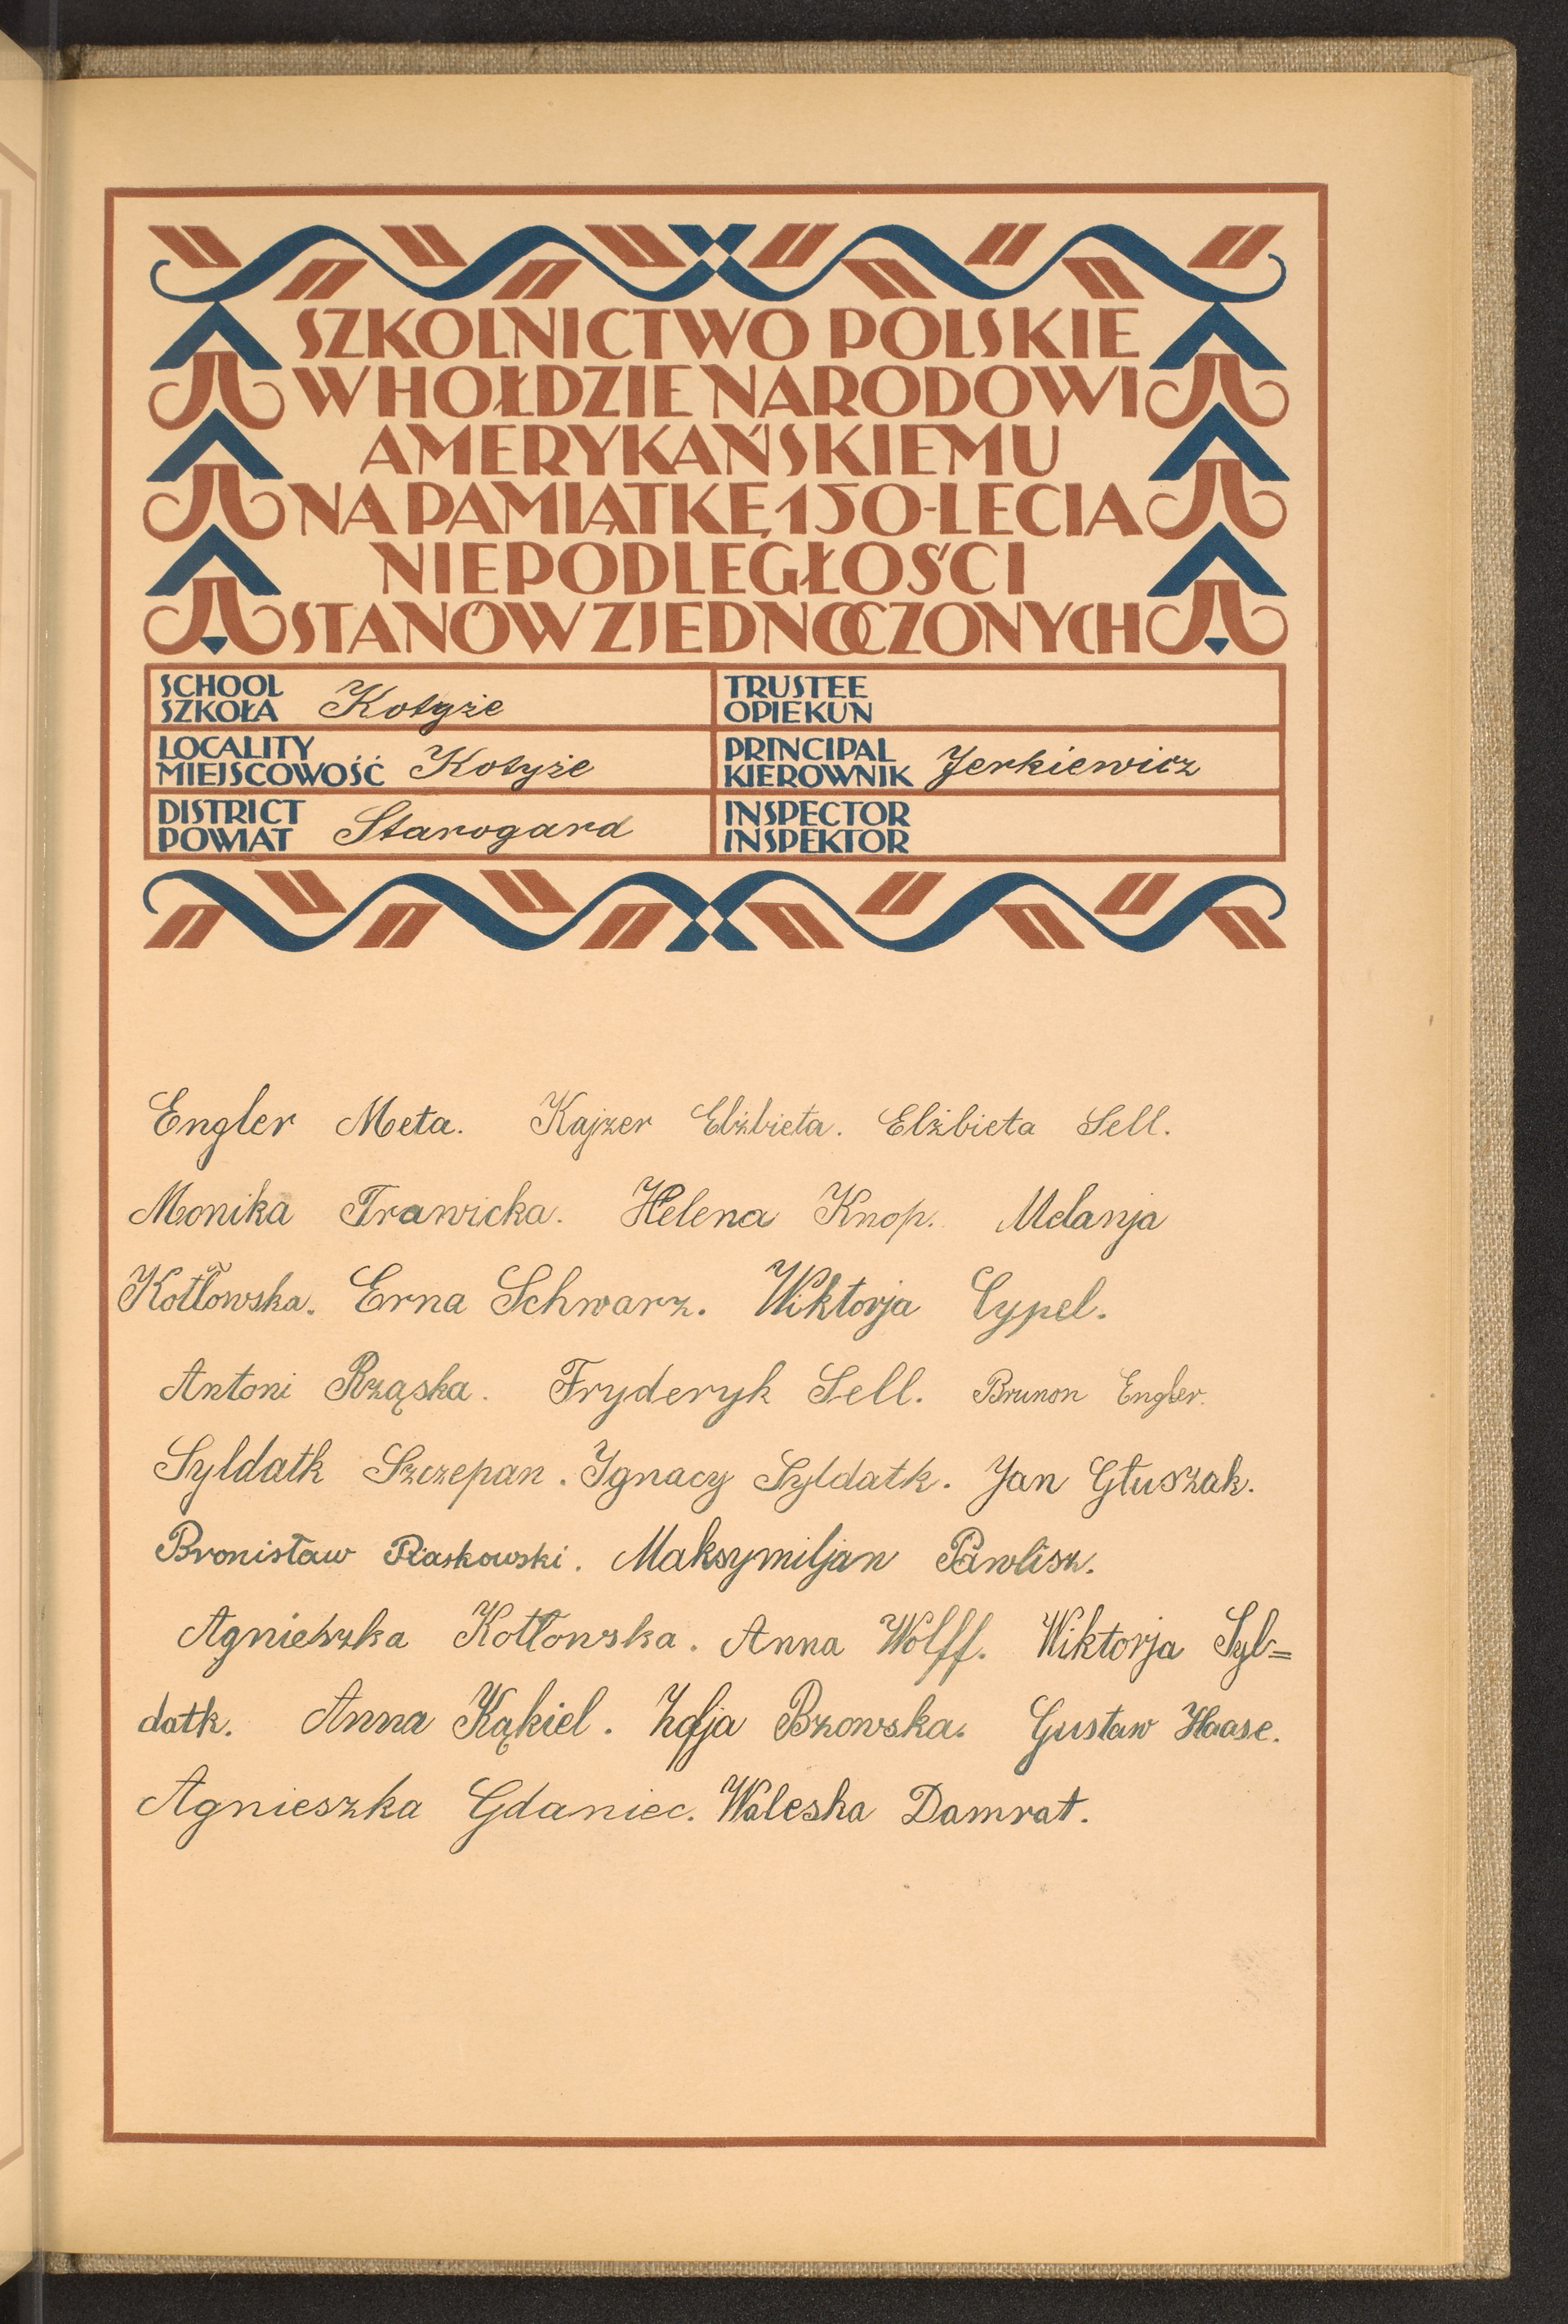 SZKOLNICTWO POLSKIE
W HOŁDZIE NARODOWI
AMERYKAŃSKIEMU
NA PAMIĄTKĘ 150-LECIA
NIEPODLEGŁOŚCI
STANÓW ZJEDNOCZONYCH
SCHOOL
SZKOŁA Kotyże
TRUSTEE
OPIEKUN
LOCALITY
MIEJSCOWOŚĆ Kotyże
PRINCIPAL
KIEROWNIK Jerkiewicz
DISTRICT
POWIAT Starogard
INSPECTOR
INSPEKTOR
Engler Meta. Kajzer Elżbieta. Elżbieta Sell.
Monika Trawicka. Helena Knop. Melanja
Kotłowska. Erna Schwarz. Wiktorja Cypel.
Antoni Rząska. Fryderyk Sell. Brunon Engler.
Syldatk Szczepan. Ignacy Syldatk. Jan Głuszak.
Bronisław Piaskowski. Maksymiljan Pawlisz.
Agnieszka Kotłowska. Anna Wolff. Wiktorja Syl=
datk. Anna Kąkiel. Zofja Bzowska. Gustaw Haase.
Agnieszka Gdaniec. Waleska Damrat.